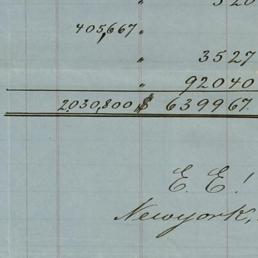 " 320
405,667 "
" 3527
" 92040
2,030,800 $ 639967.
E. E!
Newyork,